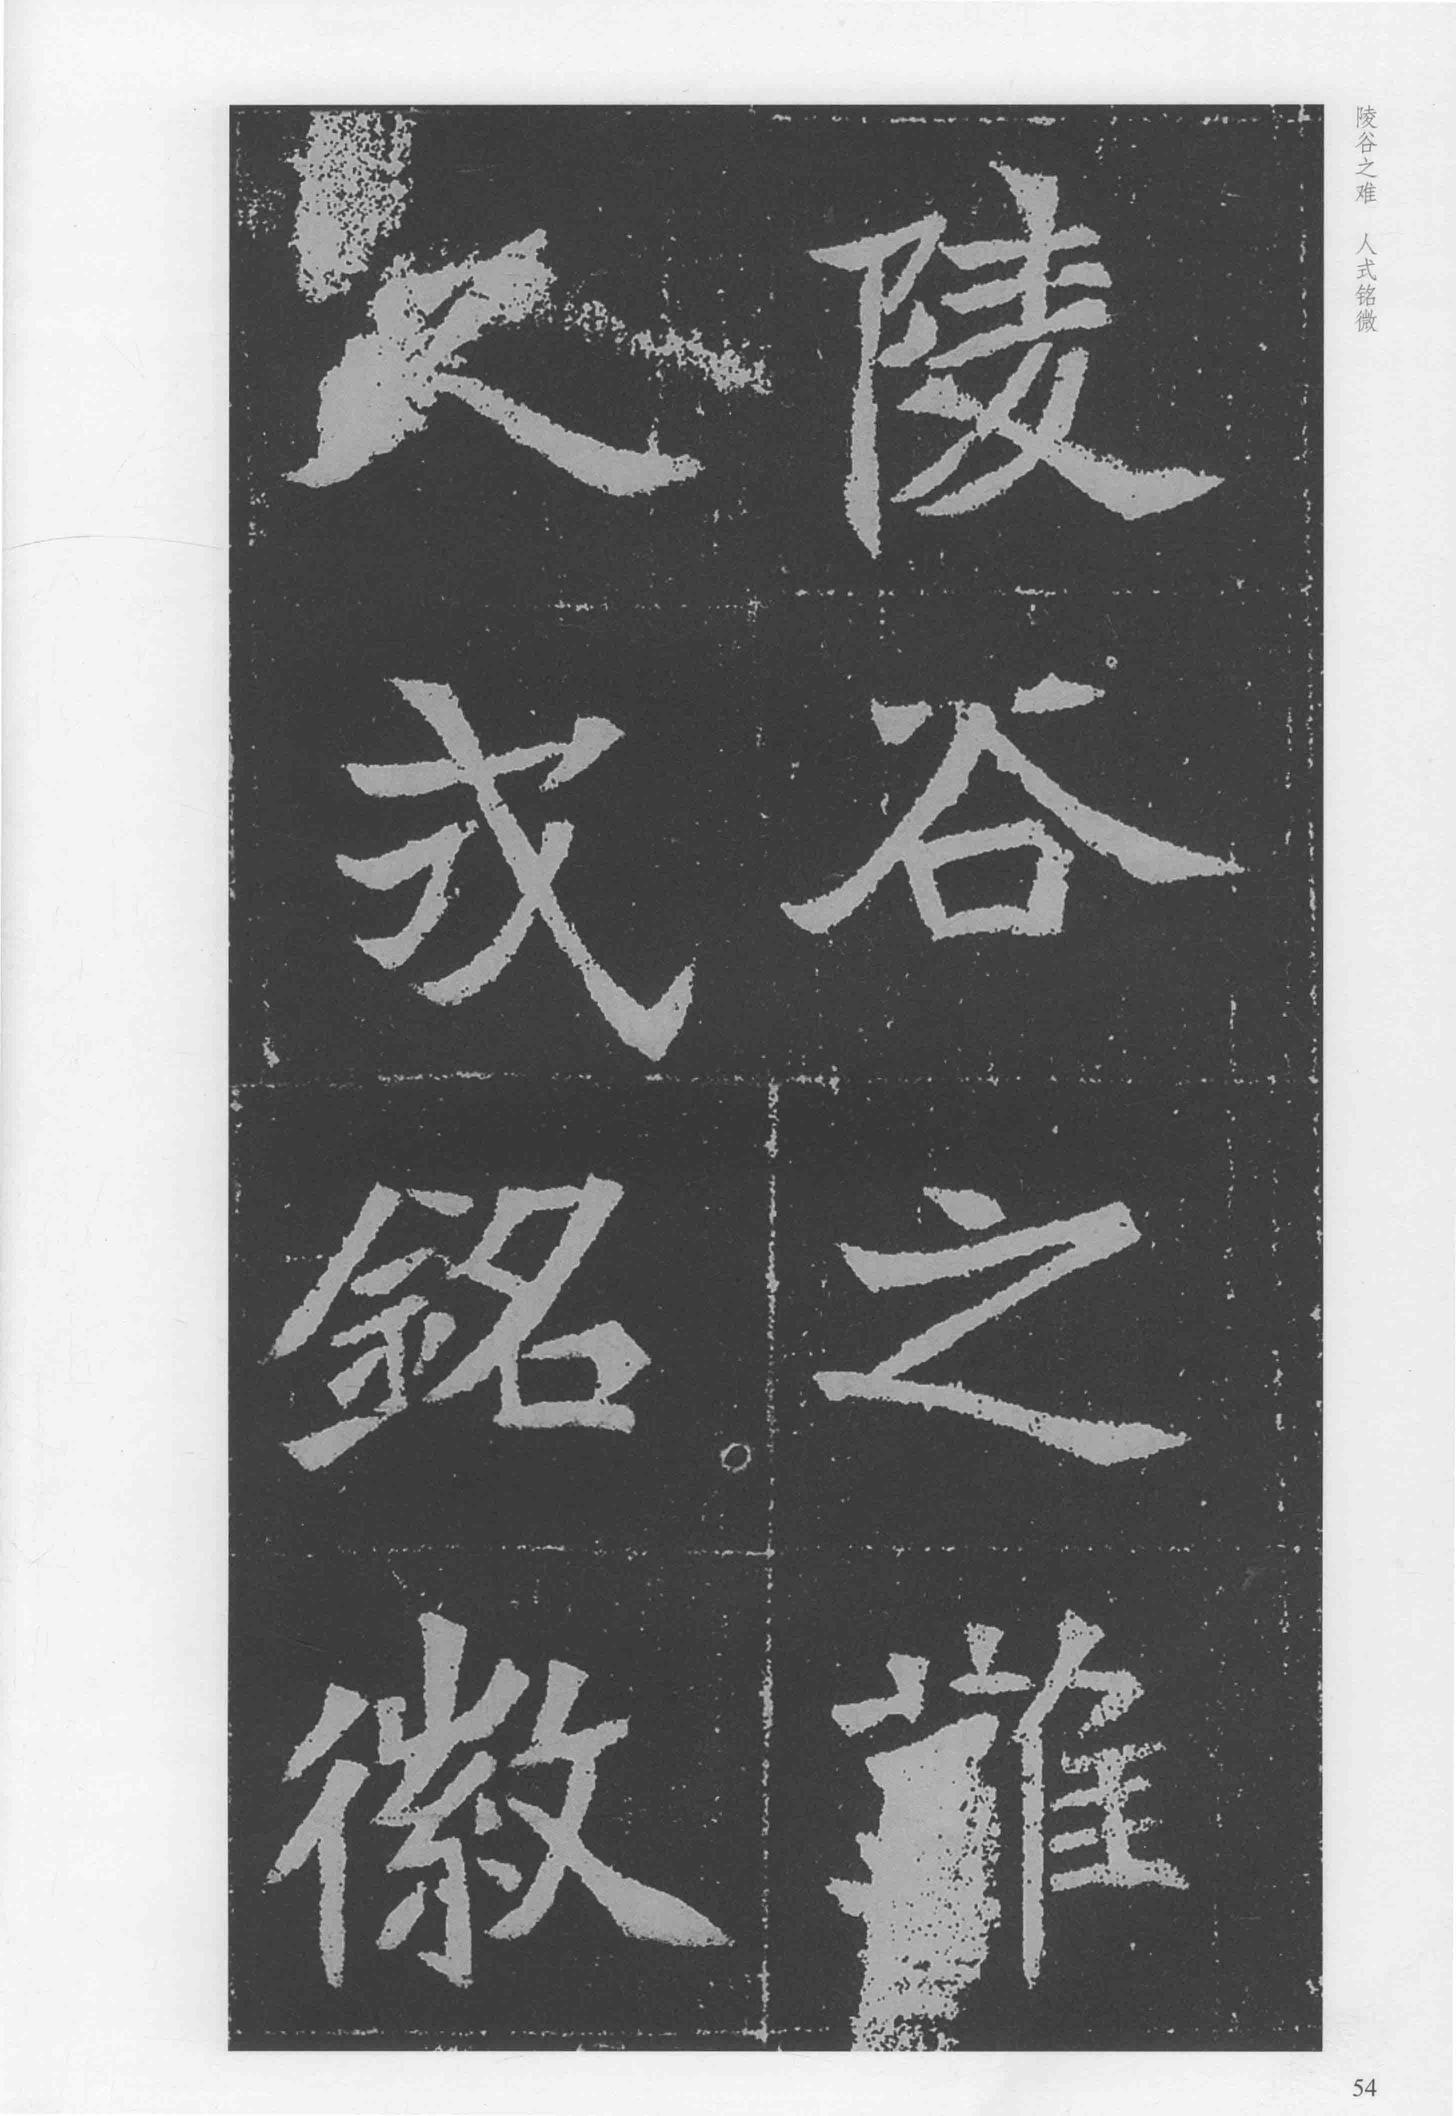 陵谷之难　人式铭微
陵谷之難
久式銘徽
54